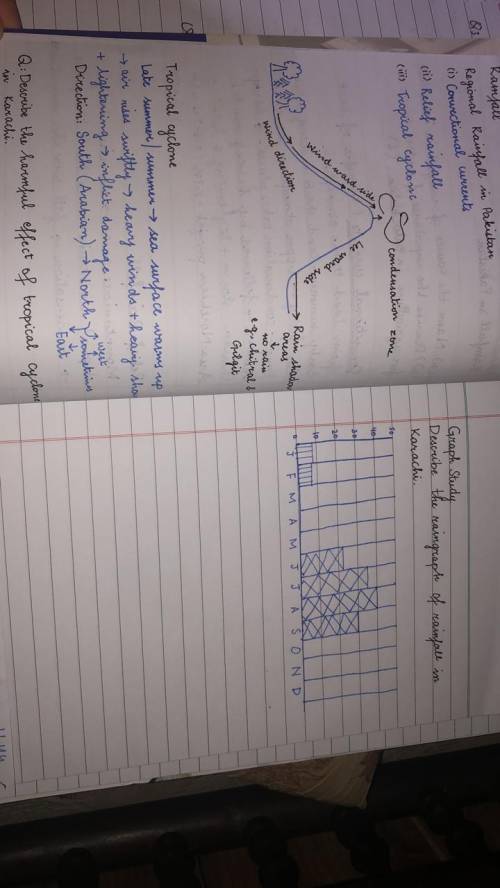 Rainfall
Regional Rainfall in Pakistan
(i) Convectional currents
(ii) Relief rainfall
(iii) Tropical cyclone
condensation zone
wind ward side
wind direction
Rain shadow
areas
↓
no rain
e.g. chitral &
Gilgit
Tropical cyclone
Late summer/summer → sea surface warms up
→ air rises swiftly → heavy winds + heavy sho
+ lightening → inflict damage.
Direction: South (Arabian) → North } sometimes
west
East
Q: Describe the harmful effect of tropical cyclone
in Karachi.
Graph Study
Describe the raingraph of rainfall in
Karachi.
50
40
30
20
10
0
J F M A M J J A S O N D